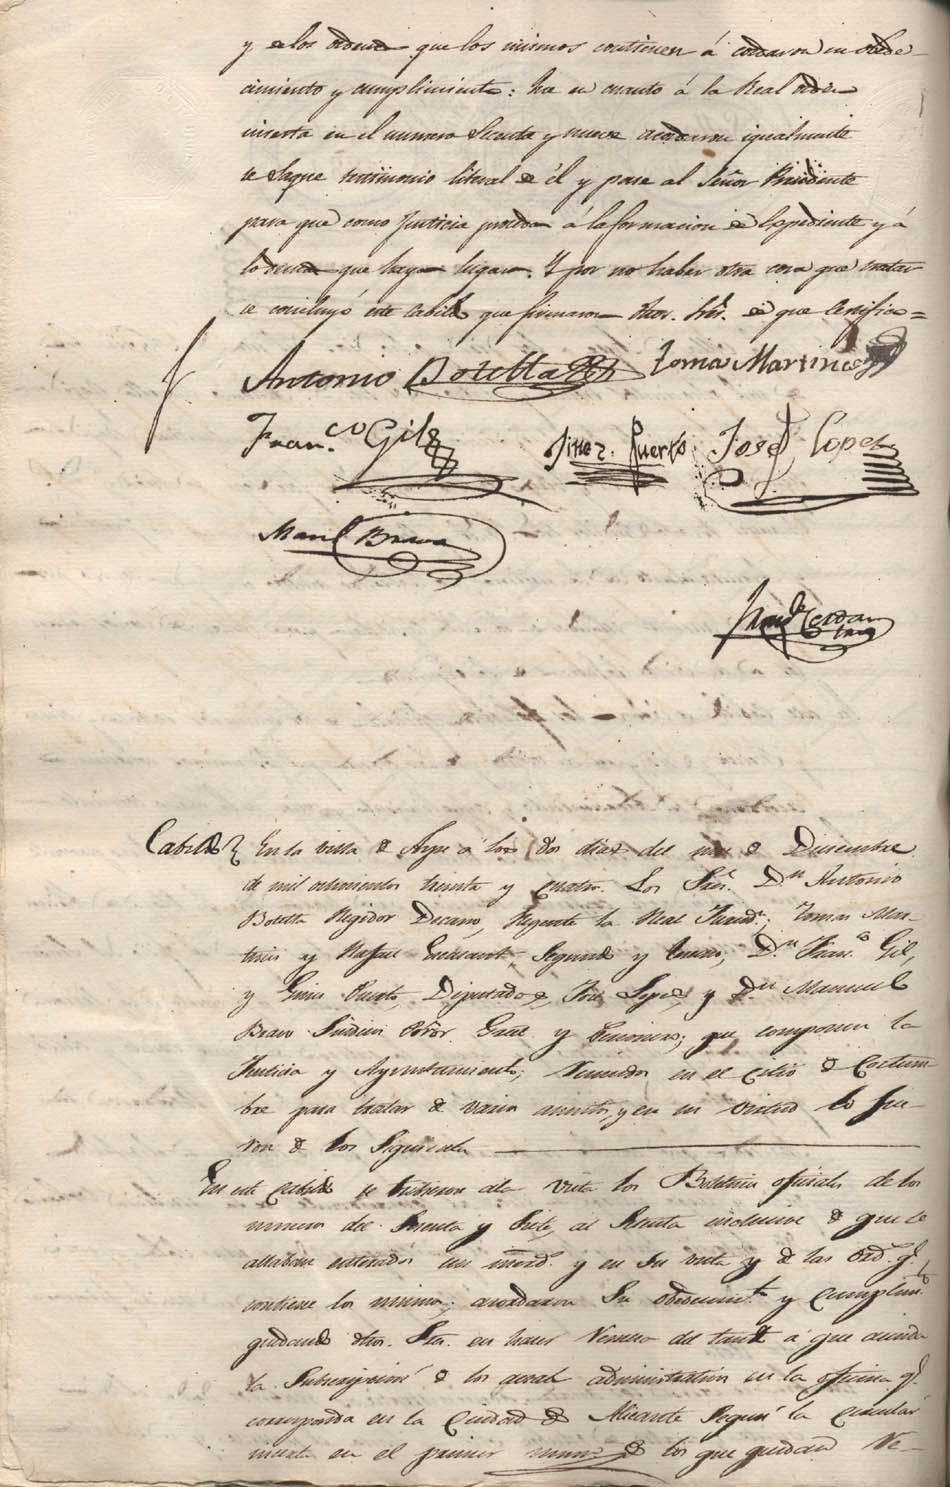 y de los ordenes que los mismos contienen á cordaron su obde-
cimiento y cumplimiento: Ina en cuanto á la Real orden
inserta en el numero Sesenta y nueve acordaron igualmente
se Saque testimonio literal de él y pase al Señor Presidente
para que como Justicia proceda á la formacion de Expediente y á
lo demas que haya lugar. Y por no haber otra cosa que tratar
se concluyó este Cabildo que firmaron dhos. Sres. de que Certifico =
Antonio Botella Tomas Martinez
Fran.co Gil Ginez Puerto José Lopez
Man.l Bravo
Cerdan
Cabildo En la villa de Aspe á los dos dias del mes de Diciembre
de mil ochocientos treinta y cuatro. Los Sres. D.n Antonio
Botella Regidor Decano, Regente la Real Jurisd.n; Tomas Mar-
tinez y Rafael Segundo y tercero; D.n Fran.co Gil,
y Gines Puerto, Diputados, José Lopez y D.n Manuel
Bravo Sindicos Prôr. Gral y Personero; que componen la
Justicia y Ayuntamiento; Reunidos en el Citio de Costum-
bre para tratar de varios asuntos, y en su virtud lo fue-
ron de los Siguientes
En este Cabildo se tubieron ala Vista los Boletines oficiales de los
numeros del Sesenta y Siete, al Setenta inclusive de que se
allaban enterados sus mrds. y en Su vista y de las ords. q.e
contiene los mismos; acordaron Su obdecim.to y Cumplim.to
quedando dhos. Sres. en hacer Remesa del tanto á que acienda
la Subscripcion de los administrativos en la oficina q.e
corresponda en la Ciudad de Alicante Segun la Circular
inserta en el primer num.o de los que quedan Re-